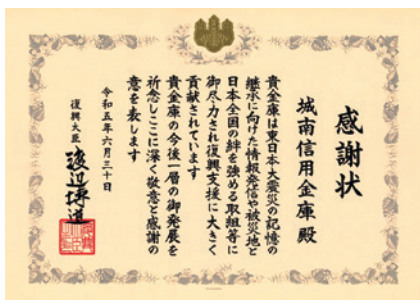 感謝状
城南信用金庫 殿
貴金庫は東日本大震災の記憶の
継承に向けた情報発信や被災地と
日本全国の絆を強める取組等に
御尽力され復興支援に大きく
貢献されています
貴金庫の今後一層の御発展を
祈念しここに深く敬意と感謝の
意を表します
令和五年六月三十日
復興大臣 渡辺博道